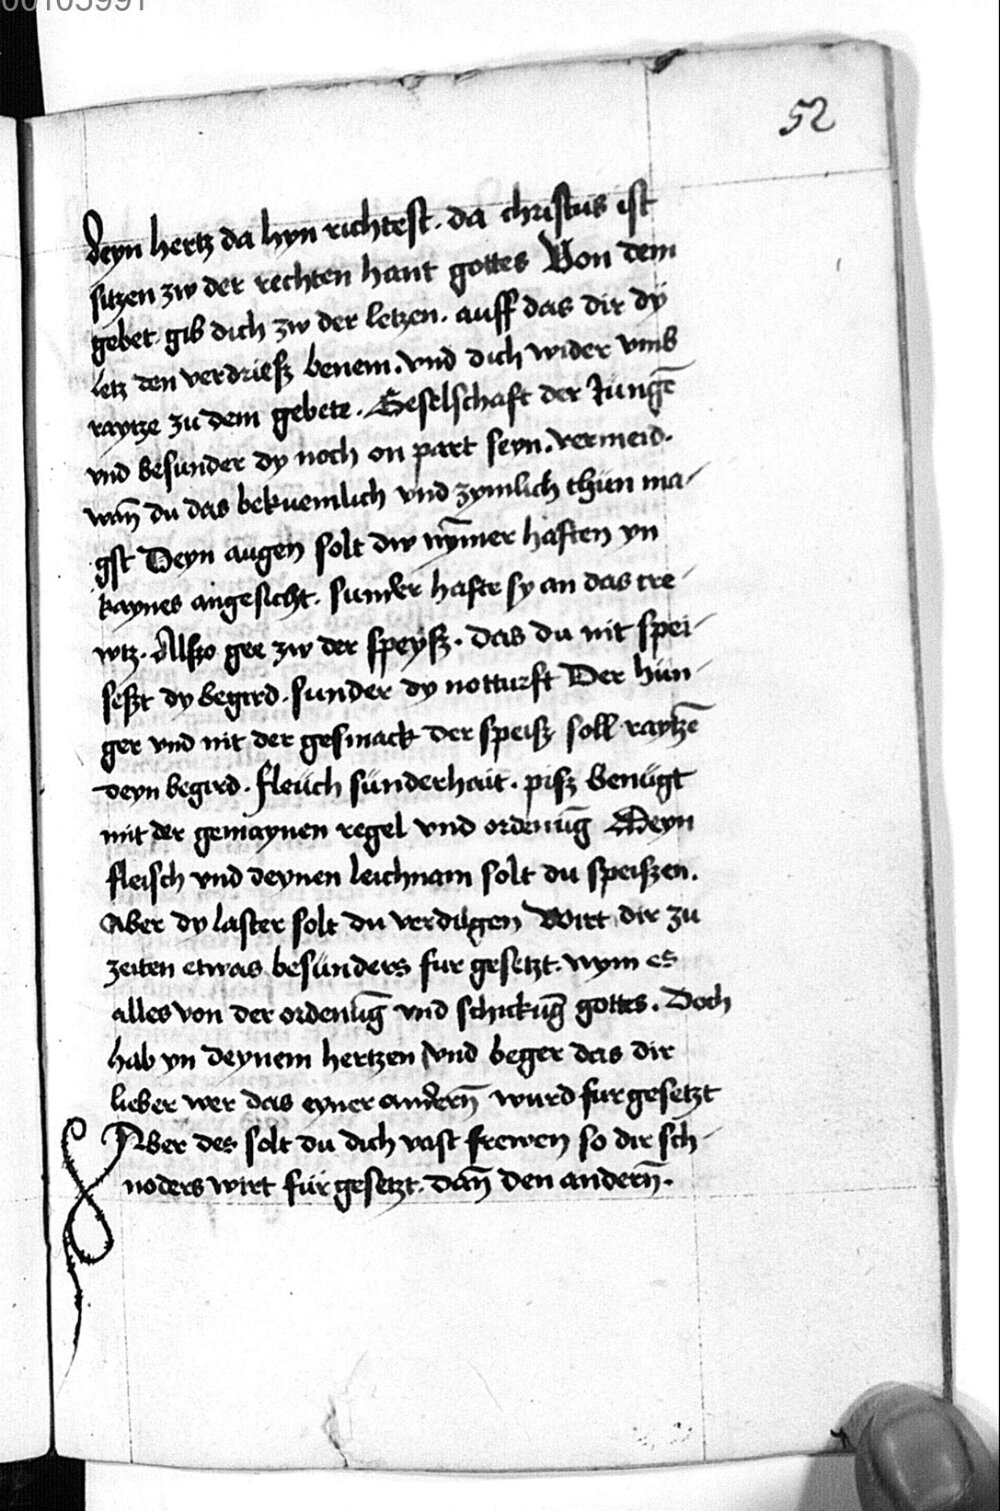 00105991
52
deyn hertz da hyn richtest. da christus ist
sitzen zw der rechten hant gottes Von dem
gebet gib dich zw der letzen. auff das dir dÿ
letz den verdrieß benem. vnd dich wider vmb
raytze zu dem gebete. Geselschaft der Jungē
vnd besunder dy noch on part seyn. vermeid.
wan̄ du das bekuemlich vnd zymlich thün ma-
gst Deyn augen solt dw nȳmer haften yn
kaynes angesicht. sunder hafte sy an das cre-
wtz. Alßo gee zw der speyß. das du nit spei-
seßt dy begird. sunder dy notturft Der hün-
ger vnd nit der gesmack der speiß soll raytzē
deyn begird. fleüch sünderhait. piß benügt
mit der gemaynen regel vnd ordenūg Deyn
fleisch vnd deynen leichnam solt du speißen.
Aber dy laster solt du verdilgen Wirt dir zu
zeiten etwas besünders fur gesetzt. nym es
alles von der ordenūg vnd schickūg gottes. Doch
hab yn deynem hertzen vnd beger das dir
lieber wer das eyner andern̄ wurd fur gesetzt
Aber des solt du dich vast frewen so dir sch-
noders wirt für gesetzt. dan̄ den andern̄.